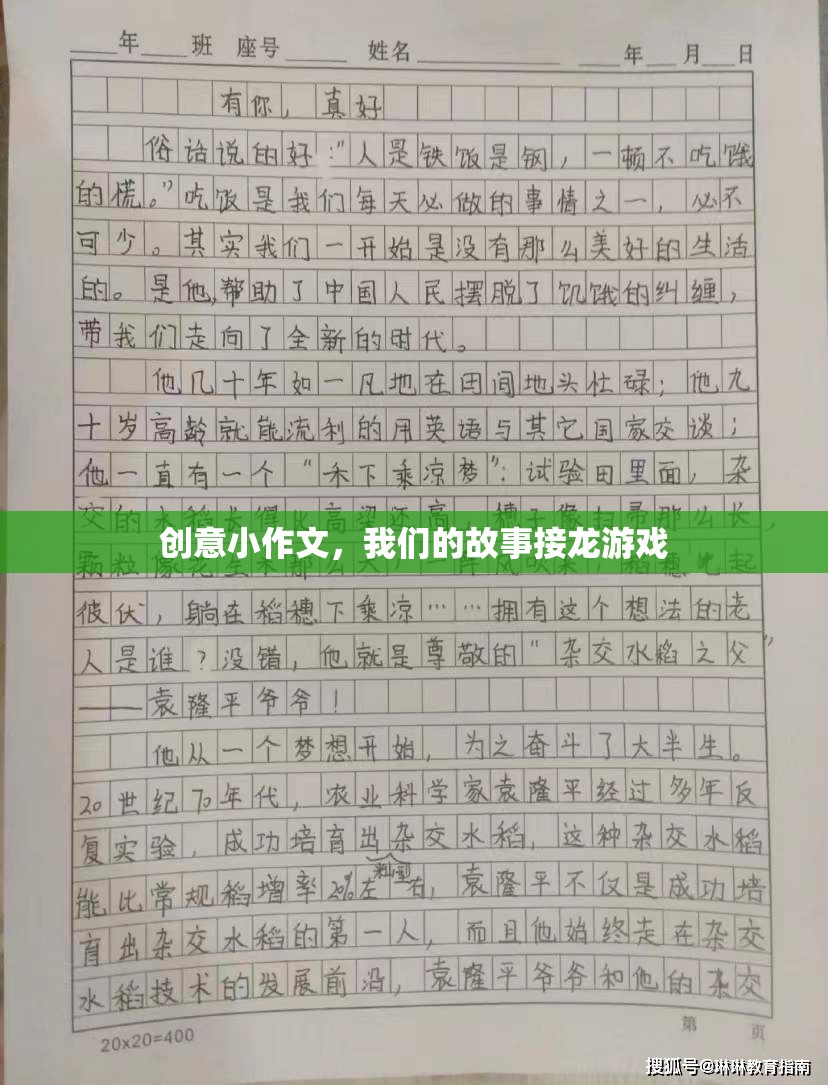 ____年____班 座号______ 姓名______________ ____年___月___日
有你，真好
俗话说的好：“人是铁饭是钢，一顿不吃饿
的慌。”吃饭是我们每天必做的事情之一，必不
可少。其实我们一开始是没有那么美好的生活
的。是他，帮助了中国人民摆脱了饥饿的纠缠，
带我们走向了全新的时代。
他几十年如一凡地在田间地头忙碌；他九
十岁高龄就能流利的用英语与其它国家交谈；
他一直有一个“禾下乘凉梦”：试验田里面，杂
交的水稻长得比高粱还高，穗子像扫帚那么长，
创意小作文，我们的故事接龙游戏
颗粒像花生米那么大，一阵风吹来，稻穗此起
彼伏，躺在稻穗下乘凉……拥有这个想法的老
人是谁？没错，他就是尊敬的“杂交水稻之父”
——袁隆平爷爷！
他从一个梦想开始，为之奋斗了大半生。
20世纪70年代，农业科学家袁隆平经过多年反
复实验，成功培育出籼型杂交水稻，这种杂交水稻
能比常规稻增率20%左右，袁隆平不仅是成功培
育出杂交水稻的第一人，而且他始终走在杂交
水稻技术的发展前沿，袁隆平爷爷和他的杂交
20×20=400
第 页
搜狐号@琳琳教育指南